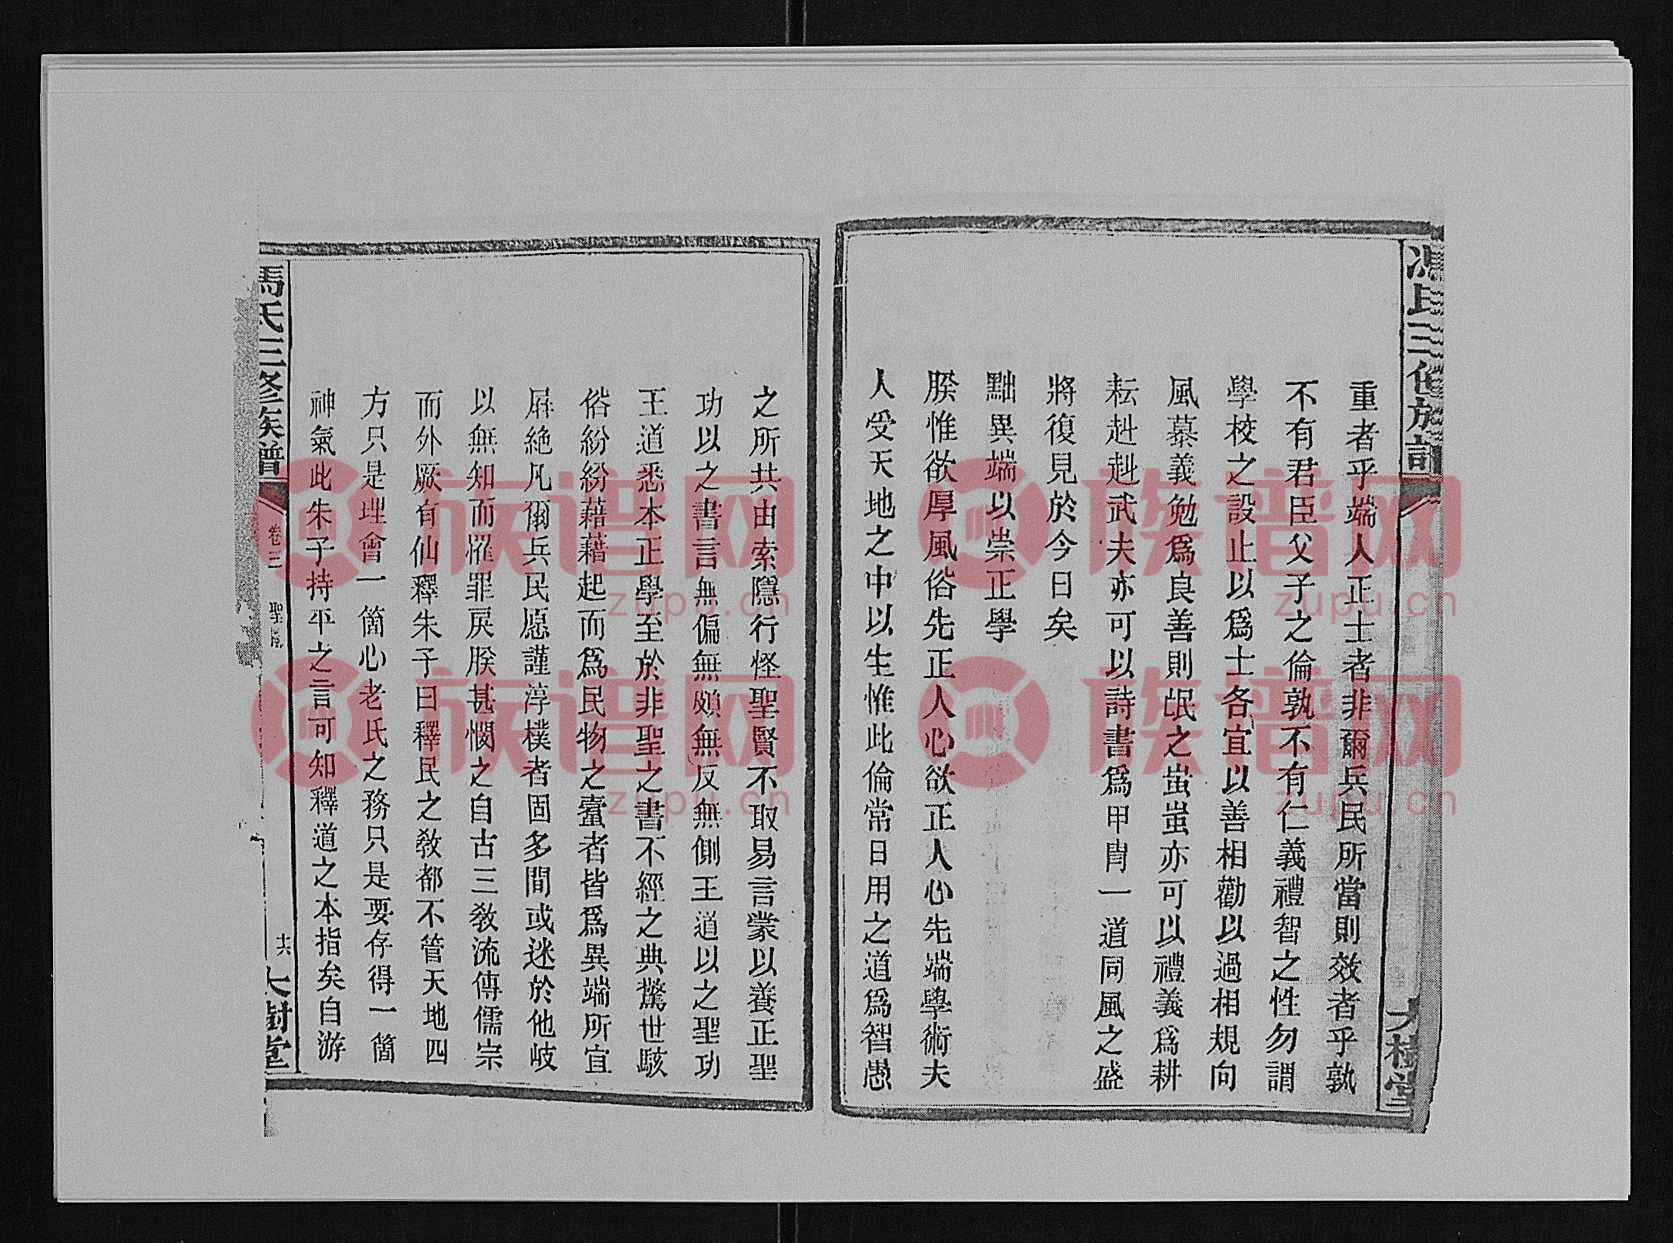 馮氏三修族譜
大樹堂
重者乎端人正士者非爾兵民所當則效者乎孰
不有君臣父子之倫孰不有仁義禮智之性勿謂
學校之設止以爲士各宜以善相勸以過相規向
風慕義勉爲良善則氓之蚩蚩亦可以禮義爲耕
耘赳赳武夫亦可以詩書爲甲冑一道同風之盛
將復見於今日矣
黜異端以崇正學
朕惟欲厚風俗先正人心欲正人心先端學術夫
人受天地之中以生惟此倫常日用之道爲智愚
之所共由索隱行怪聖賢不取易言蒙以養正聖
功以之書言無偏無頗無反無側王道以之聖功
王道悉本正學至於非聖之書不經之典驚世駭
俗紛紛藉藉起而爲民物之蠹者皆爲異端所宜
屏絶凡爾兵民愿謹淳樸者固多間或迷於他岐
以無知而罹罪戾朕甚憫之自古三教流傳儒宗
而外厥有仙釋朱子曰釋氏之教都不管天地四
方只是理會一箇心老氏之務只是要存得一箇
神氣此朱子持平之言可知釋道之本指矣自游
馮氏三修族譜
卷三
聖諭
十六
大樹堂
族谱网
zupu.cn
族谱网
zupu.cn
族谱网
zupu.cn
族谱网
zupu.cn